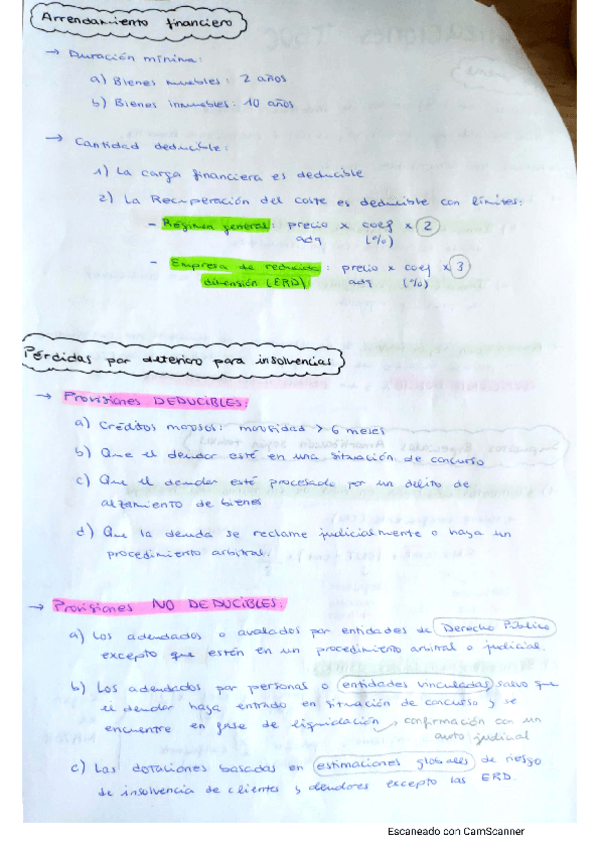 Arrendamiento financiero
→ Duración mínima:
a) Bienes muebles: 2 años
b) Bienes inmuebles: 10 años
→ Cantidad deducible:
1) La carga financiera es deducible
2) La Recuperación del coste es deducible con límites:
- Régimen general: precio x coef x 2
adq (%)
- Empresa de reducida : precio x coef x 3
dimensión (ERD) adq (%)
Pérdidas por deterioro para insolvencias
→ Provisiones DEDUCIBLES:
a) Créditos morosos: morosidad > 6 meses
b) Que el deudor esté en una situación de concurso
c) Que el deudor esté procesado por un delito de
alzamiento de bienes
d) Que la deuda se reclame judicialmente o haya un
procedimiento arbitral.
→ Provisiones NO DEDUCIBLES:
a) Los adeudados o avalados por entidades de Derecho Público
excepto que estén en un procedimiento arbitral o judicial.
b) Los adeudados por personal o entidades vinculadas, salvo que
el deudor haya entrado en situación de concurso y se
encuentre en fase de liquidación → confirmación con un
auto judicial
c) Las dotaciones basadas en estimaciones globales de riesgo
de insolvencia de clientes y deudores excepto las ERD.
Escaneado con CamScanner